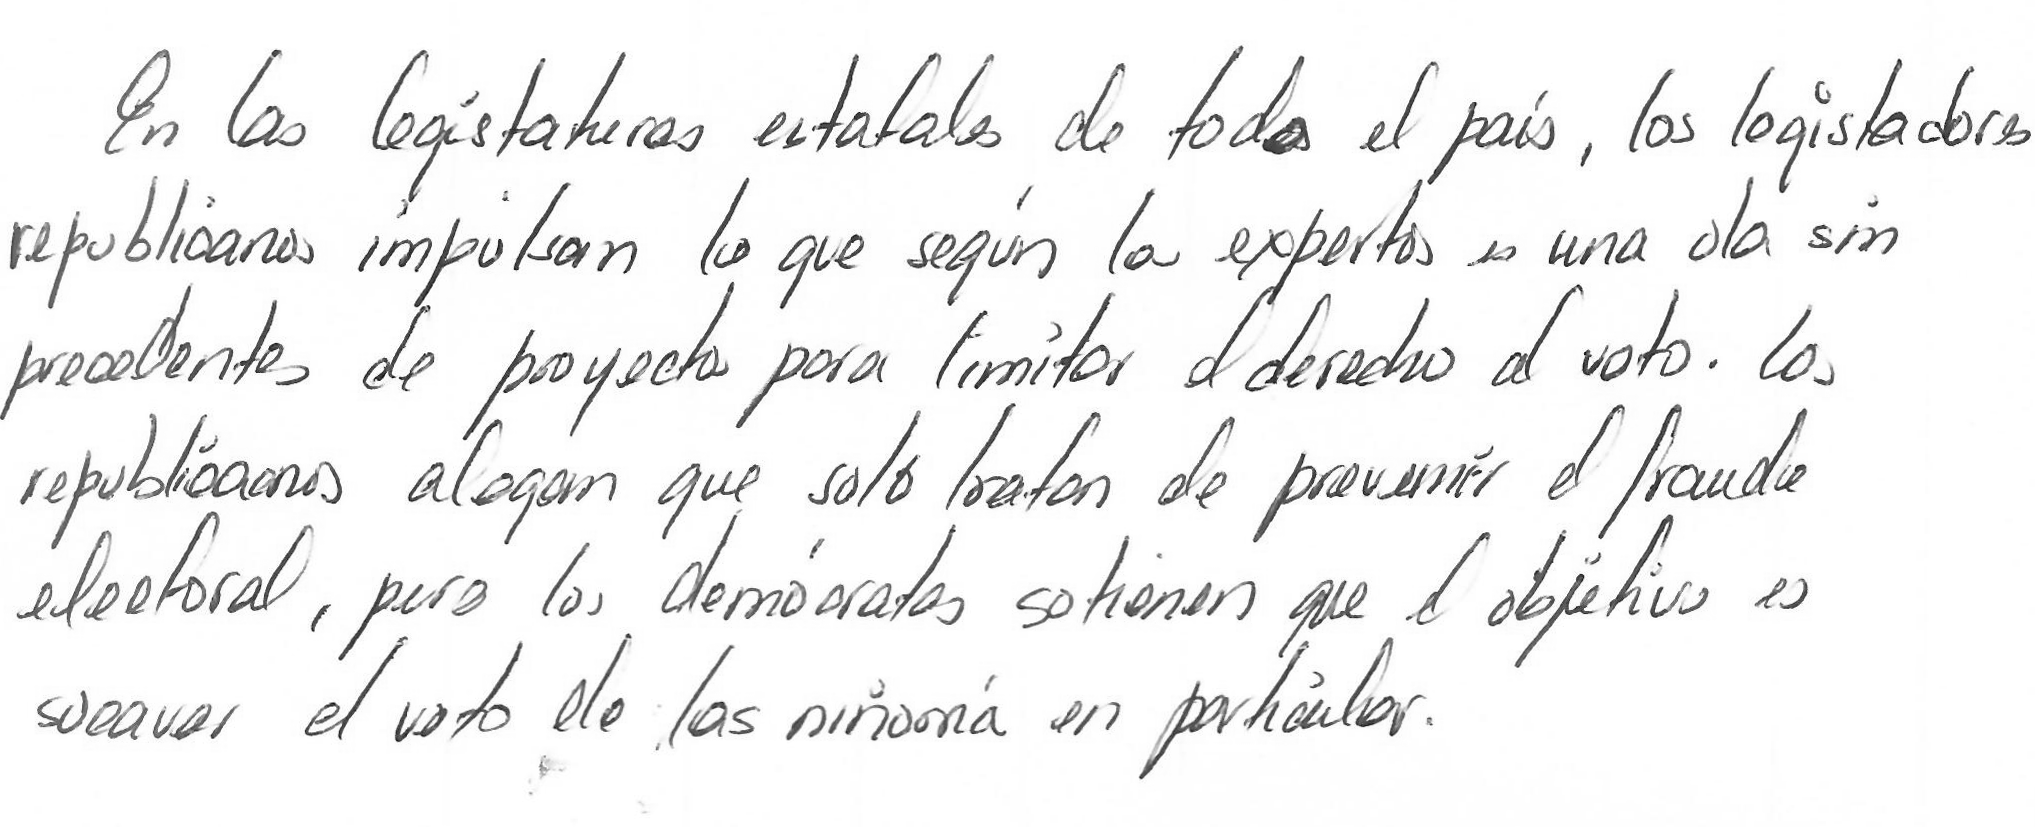 En las legislaturas estatales de todo el país, los legisladores
republicanos impulsan lo que según los expertos es una ola sin
precedentes de proyectos para limitar el derecho al voto. Los
republicanos alegan que solo tratan de prevenir el fraude
electoral, pero los demócratas sotienen que el objetivo es
socavar el voto de las minoría en particular.